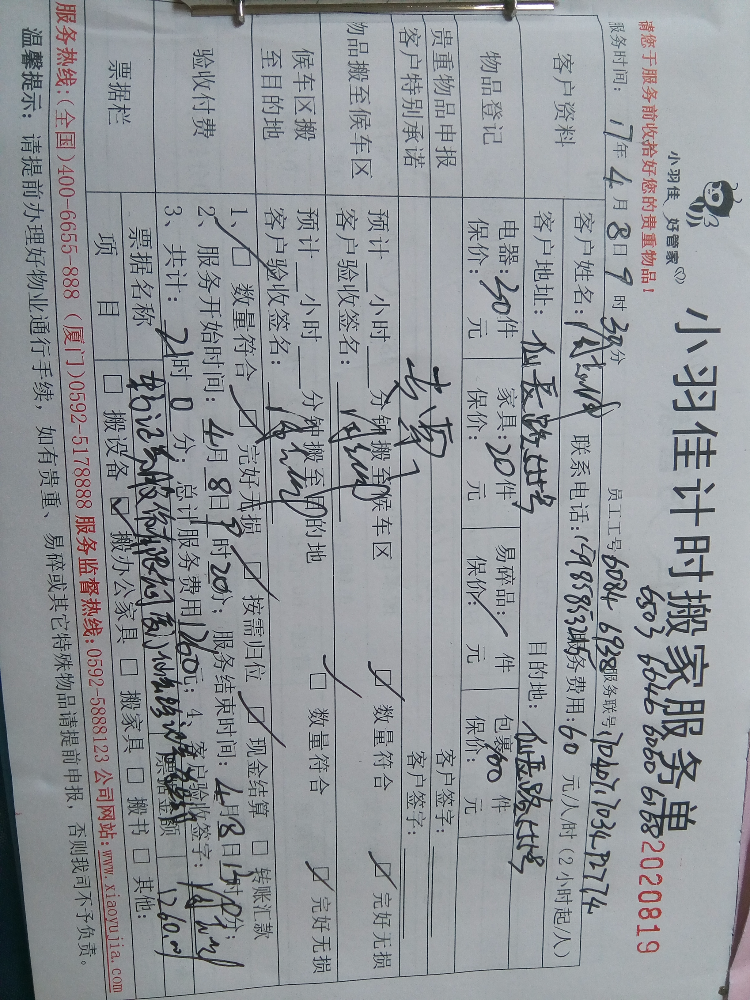 请您于服务前收拾好您的贵重物品!
小羽佳 好管家
小羽佳计时搬家服务单
2020819
6503 6646 6060 6168
服务时间: 17年4月8日9时30分 员工工号6084 6938服务联号
客户资料
客户姓名: 联系电话: 服务费用:60元/人/时(2小时起/人)
客户地址: 目的地:
物品登记
电器:30件 家具:20件 易碎品:/件 包裹:件
保价: 元 保价: 元 保价: 元 保价: 元
贵重物品申报 客户签字:
客户特别承诺 客户签字:
物品搬至候车区
预计__小时__分钟搬至候车区 数量符合 完好无损
客户验收签名:
候车区搬至目的地
预计__小时__分钟搬至目的地 数量符合 完好无损
客户验收签名:
验收付费
1、 数量符合 完好无损 按需归位 现金结算 转账汇款
2、服务开始时间:4月8日9时20分; 服务结束时间:4月8日13时0分;
3、共计:21时0分; 总计服务费用1260元; 4、客户验收签字:
票据栏
票据名称 票据金额 1260.00
项目 搬设备 搬办公家具 搬家具 搬书 其他:
服务热线:(全国)400-6655-888 (厦门)0592-5178888 服务监督热线:0592-5888123 公司网站:www.xiaoyujia.com
温馨提示: 请提前办理好物业通行手续,如有贵重、易碎或其它特殊物品请提前申报,否则我司不予负责。